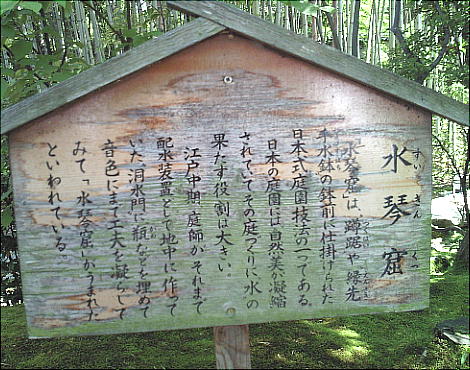 水琴窟
すいきんくつ
「水琴窟」は、蹲踞や縁先
手水鉢の鉢前に仕掛けられた
日本式庭園技法の一つである。
日本の庭園には自然の美が凝縮
されていてその庭づくりに水の
果たす役割は大きい。
江戸中期、庭師が、それまで
配水装置として地中に作って
いた洞水門に瓶などを埋めて
音色にまで工夫を凝らして
みて「水琴窟」がうまれた
といわれている。